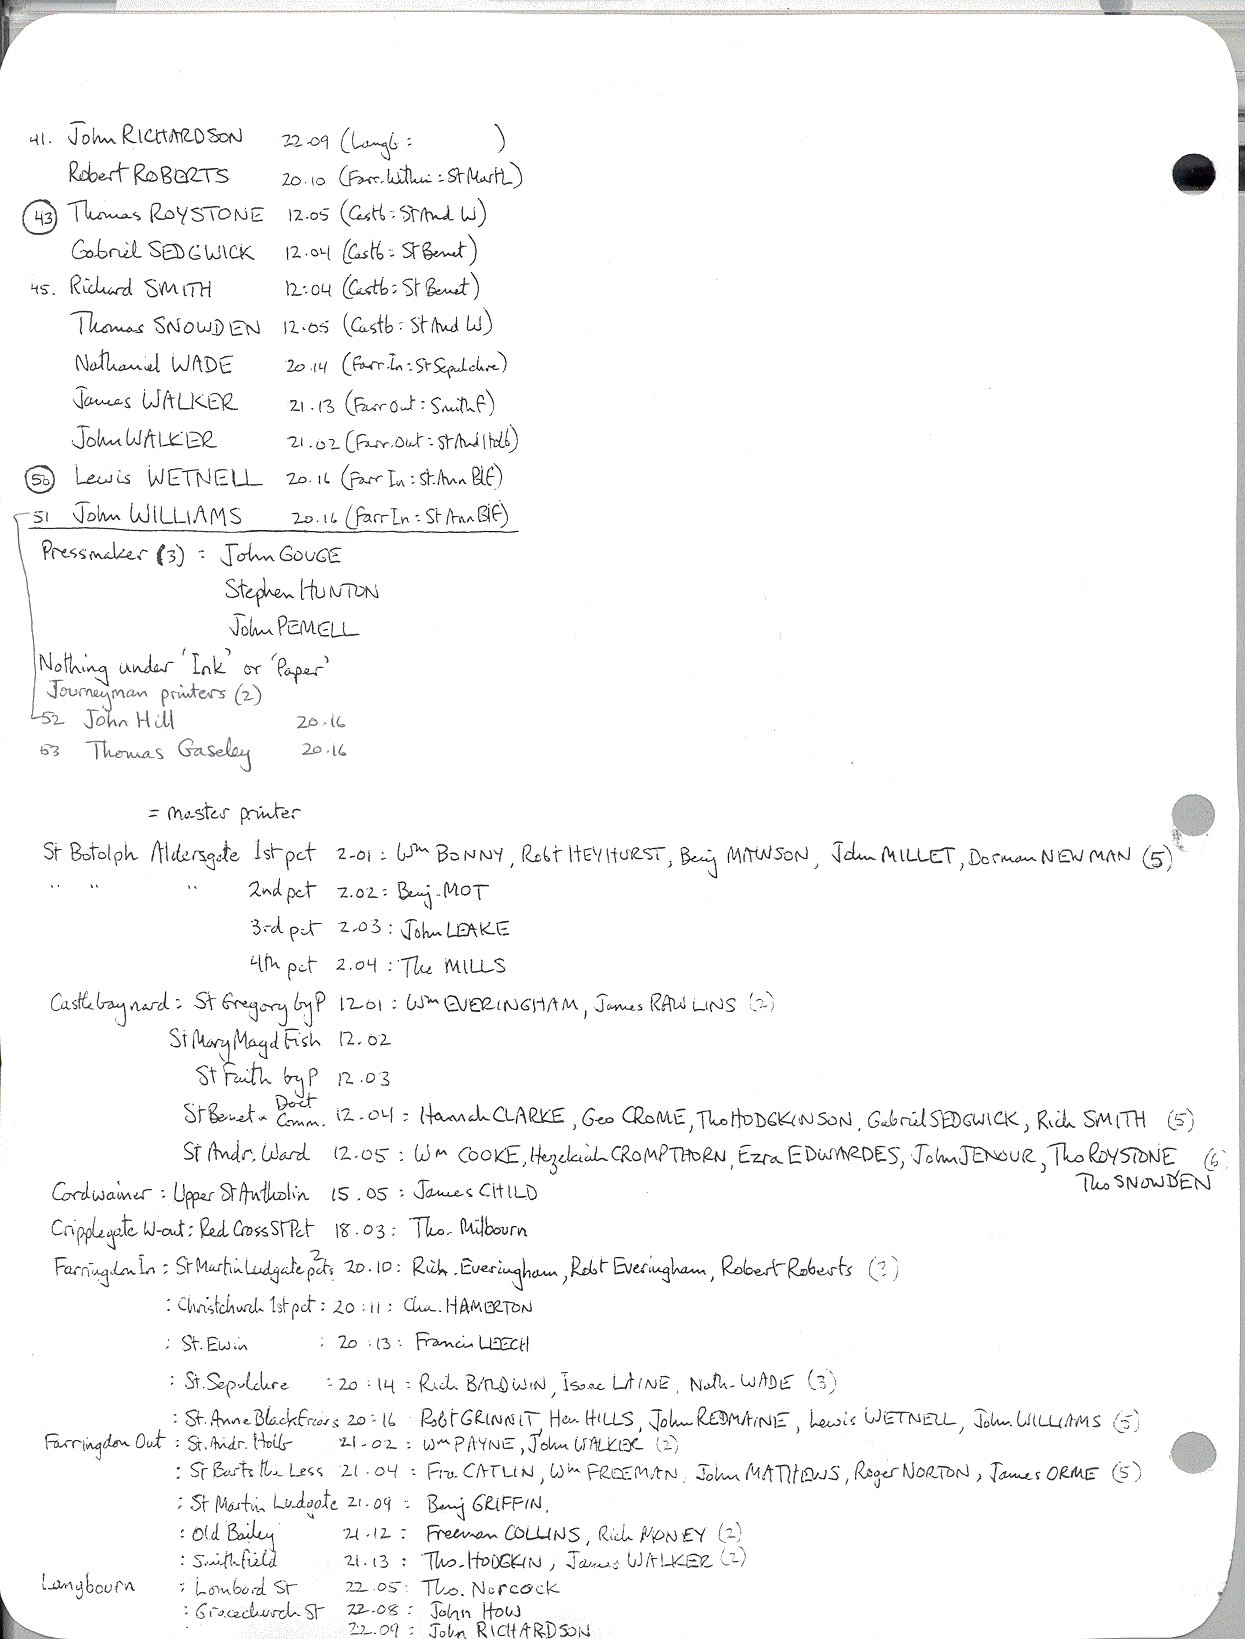 41. John RICHARDSON 22.09 (Langb : )
Robert ROBERTS 20.10 (Farr.Within : St MartL)
43 Thomas ROYSTONE 12.05 (Castb : St And W)
Gabriel SEDGWICK 12.04 (Castb : St Benet)
45. Richard SMITH 12:04 (Castb : St Benet)
Thomas SNOWDEN 12.05 (Castb : St And W)
Nathaniel WADE 20.14 (Farr.In : St Sepulchre)
James WALKER 21.13 (Farr Out : Smithf)
John WALKER 21.02 (Farr.Out : St And Holb)
50 Lewis WETNELL 20.16 (Farr In : St.Ann Blf)
51 John WILLIAMS 20.16 (Farr In : St Ann Blf)
Pressmaker (3) : John GOUGE
Stephen HUNTON
John PEMELL
Nothing under 'Ink' or 'Paper'
Journeyman printers (2)
52 John Hill 20.16
53 Thomas Gaseley 20.16
= master printer
St Botolph Aldersgate 1st pct 2.01 : Wm BONNY, Robt HEYHURST, Benj MAWSON, John MILLET, Dorman NEWMAN (5)
" " " 2nd pct 2.02 : Benj. MOT
3rd pct 2.03 : John LEAKE
4th pct 2.04 : The MILLS
Castlebaynard : St Gregory by P 12.01 : Wm EVERINGHAM, James RAWLINS (2)
St Mary Magd Fish 12.02
St Faith by P 12.03
St Benet Doct Comm. 12.04 : Hannah CLARKE, Geo CROME, Tho HODGKINSON, Gabriel SEDGWICK, Rich SMITH (5)
St Andr. Ward 12.05 : Wm COOKE, Hezekiah CROMPTHORN, Ezra EDWARDES, John JENOUR, Tho ROYSTONE (6
Tho SNOWDEN
Cordwainer : Upper St Antholin 15.05 : James CHILD
Cripplegate W-out : Red Cross St Pct 18.03 : Tho. Milbourn
Farringdon In : St Martin Ludgate 2 pcts 20.10 : Rich. Everingham, Robt Everingham, Robert Roberts (3)
: Christchurch 1st pct : 20:11 : Cha. HAMERTON
: St. Ewin : 20:13 : Francis LEECH
: St. Sepulchre : 20:14 : Rich BALDWIN, Isaac LAINE, Nath. WADE (3)
: St. Anne Blackfriars 20:16 Robt GRINNIT, Hen HILLS, John REDMAINE, Lewis WETNELL, John WILLIAMS (5)
Farringdon Out : St. Andr. Holb 21.02 : Wm PAYNE, John WALKER (2)
: St Barts the Less 21.04 : Fra CATLIN, Wm FREEMAN, John MATTHEWS, Roger NORTON, James ORME (5)
: St Martin Ludgate 21.09 : Benj GRIFFIN.
: Old Bailey 21.12 : Freeman COLLINS, Rich MONEY (2)
: Smithfield 21.13 : Tho. HODGKIN, James WALKER (2)
Langbourn : Lombard St 22.05 : Tho. Norcock
: Gracechurch St 22.08 : John HOW
22.09 : John RICHARDSON